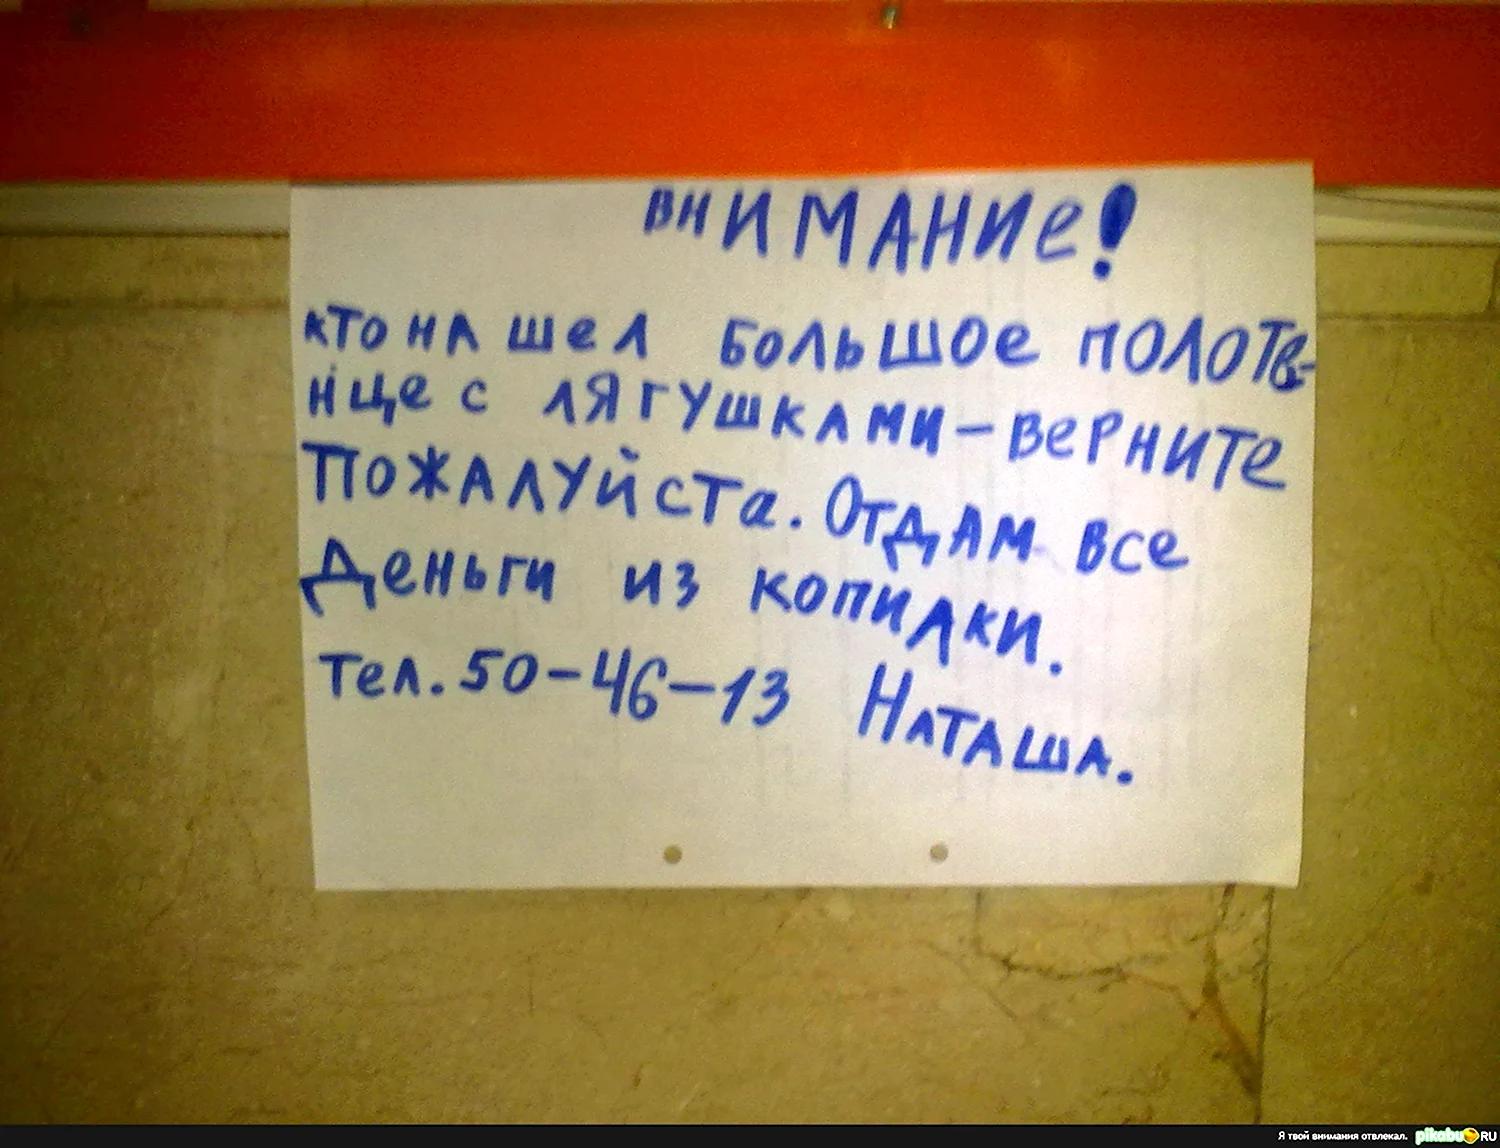 ВНИМАНИе!
кто нашел большое полоте-
нце с лягушками - верните
пожалуйста. Отдам все
деньги из копилки.
тел. 50-46-13 Наташа.
Я твой внимания отвлекал. pikabu.RU